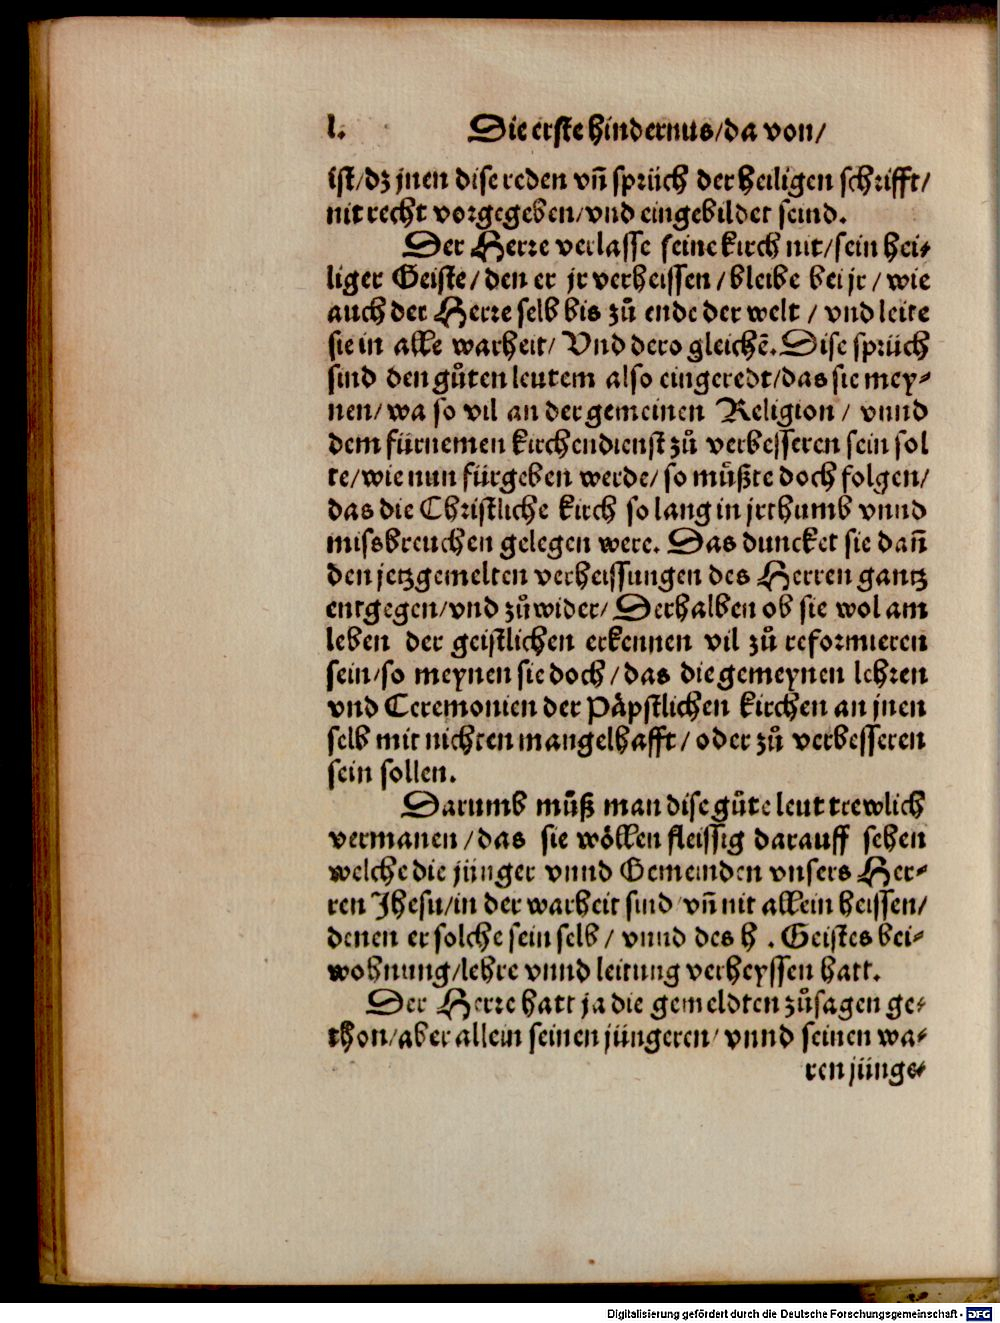 l. Die erste hindernus/da von/
ist/dz jnen dise reden vñ sprüch der heiligen schrifft/
nit recht vorgegeben/vnd eingebildet seind.
Der Herre verlasse seine kirch nit/sein hei⸗
liger Geiste/den er jr verheissen/bleibe bei jr/wie
auch der Herre selb bis zů ende der welt/vnd leite
sie in alle warheit/Vnd dero gleichē. Dise sprüch
sind den gůten leutem also eingeredt/das sie mey⸗
nen/wa so vil an der gemeinen Religion/vnnd
dem fürnemen kirchendienst zů verbesseren sein sol
te/wie nun fürgeben werde/so můßte doch folgen/
das die Christliche kirch so lang in jrthumb vnnd
missbreuchen gelegen were. Das duncket sie dañ
den jetzgemelten verheissungen des Herren gantz
entgegen/vnd zůwider/Derhalben ob sie wol am
leben der geistlichen erkennen vil zů reformieren
sein/so meynen sie doch/das die gemeynen lehren
vnd Ceremonien der Påpstlichen kirchen an jnen
selb mit nichten mangelhafft/oder zů verbesseren
sein sollen.
Darumb můß man dise gůte leut trewlich
vermanen/das sie wöllen fleissig darauff sehen
welche die jünger vnnd Gemeinden vnsers Her⸗
ren Jhesu/in der warheit sind vñ nit allein heissen/
denen er solche sein selb/vnnd des h. Geistes bei⸗
wohnung/lehre vnnd leitung verheyssen hatt.
Der Herre hatt ja die gemeldten zůsagen ge⸗
thon/aber allein seinen jüngeren/vnnd seinen wa⸗
ren jünge⸗
Digitalisierung gefördert durch die Deutsche Forschungsgemeinschaft - DFG